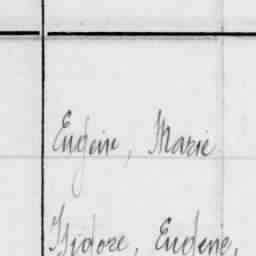 Eugène, Marie
Isidore, Eugène,